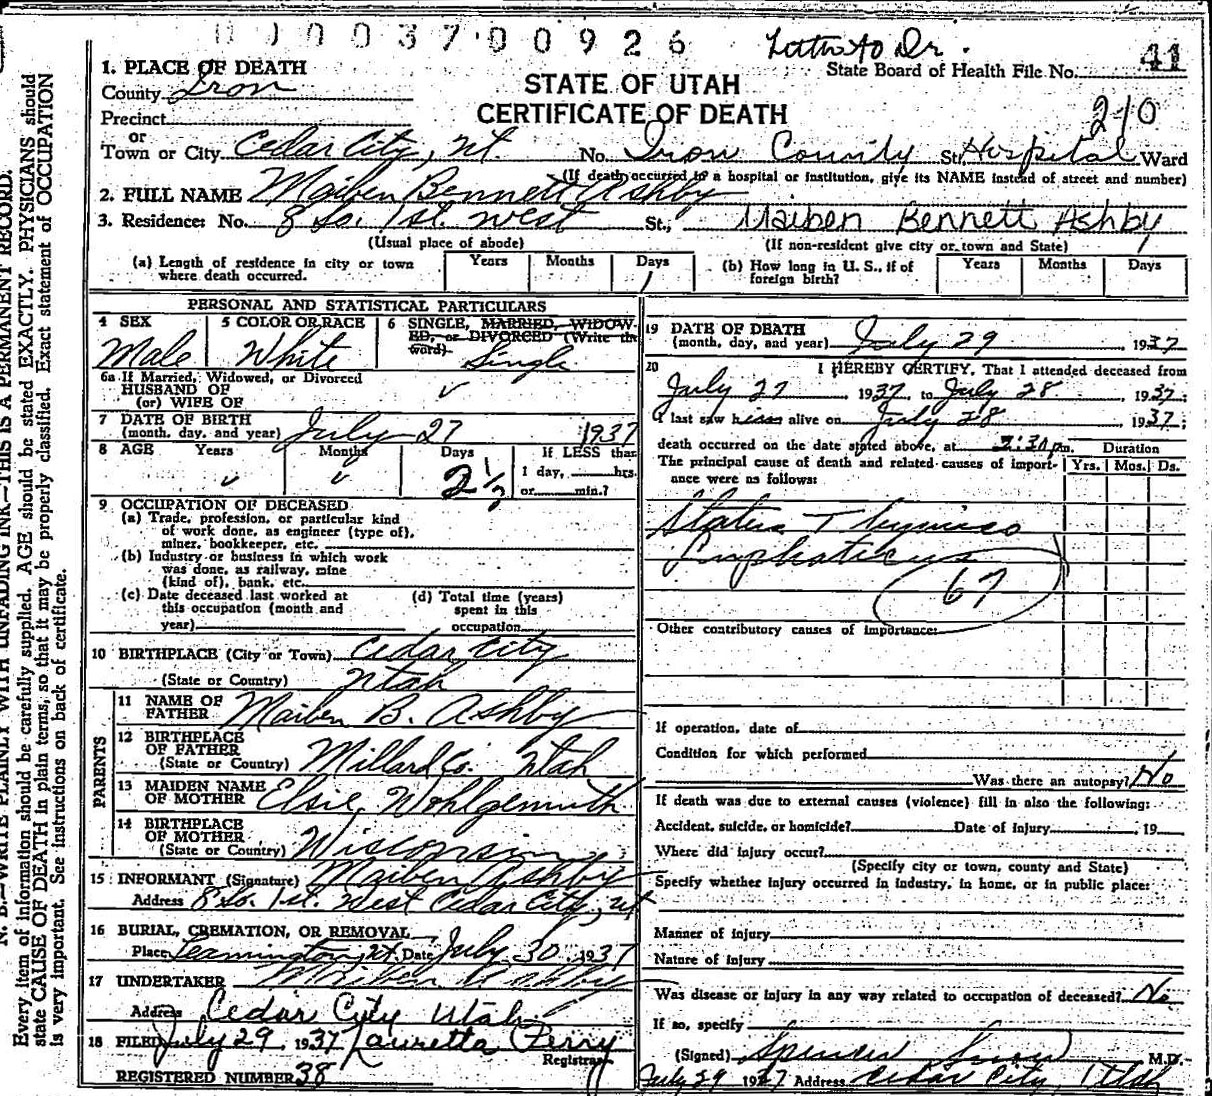 0 0 0 3 7 0 0 9 2 6
Dr.
State Board of Health File No. 41
STATE OF UTAH
CERTIFICATE OF DEATH
210
1. PLACE OF DEATH
County Iron
Precinct
or
Town or City Cedar City, Ut. No. Iron County St. Hospital Ward
(If death occurred in a hospital or institution, give its NAME instead of street and number)
2. FULL NAME Maiben Bennett Ashby
3. Residence: No. 8 So. 1st. West St., Maiben Bennett Ashby
(Usual place of abode) (If non-resident give city or town and State)
(a) Length of residence in city or town where death occurred. Years Months Days 1
(b) How long in U. S., if of foreign birth? Years Months Days
PERSONAL AND STATISTICAL PARTICULARS
4 SEX Male
5 COLOR OR RACE White
6 SINGLE, MARRIED, WIDOWED, or DIVORCED (Write the word) Single
6a If Married, Widowed, or Divorced
HUSBAND OF
(or) WIFE OF ✓
7 DATE OF BIRTH
(month, day, and year) July 27 1937
8 AGE Years ✓ Months ✓ Days 2 1/2 If LESS than
1 day, hrs.
or min.?
9 OCCUPATION OF DECEASED
(a) Trade, profession, or particular kind
of work done, as engineer (type of),
miner, bookkeeper, etc.
(b) Industry or business in which work
was done, as railway, mine
(kind of), bank, etc.
(c) Date deceased last worked at
this occupation (month and
year)
(d) Total time (years)
spent in this
occupation
10 BIRTHPLACE (City or Town) Cedar City
(State or Country) Utah
PARENTS
11 NAME OF
FATHER Maiben B. Ashby
12 BIRTHPLACE
OF FATHER
(State or Country) Millard Co. Utah
13 MAIDEN NAME
OF MOTHER Elsie Wohlgemuth
14 BIRTHPLACE
OF MOTHER
(State or Country) Wisconsin
15 INFORMANT (Signature) Maiben Ashby
Address 8 So. 1st. West Cedar City, Ut
16 BURIAL, CREMATION, OR REMOVAL
Place Leamington, Ut. Date July 30, 1937
17 UNDERTAKER Maiben Ashby
Address Cedar City Utah
18 FILED July 29, 1937 Lauretta Perry
Registrar
REGISTERED NUMBER 38
19 DATE OF DEATH
(month, day, and year) July 29, 1937
20 I HEREBY CERTIFY, That I attended deceased from
July 27, 1937, to July 28, 1937;
I last saw him alive on July 28, 1937;
death occurred on the date stated above, at 2:30 pm. Duration
The principal cause of death and related causes of importance were as follows: Yrs. Mos. Ds.
Status Thymico
Lymphaticus
67
Other contributory causes of importance:
If operation, date of
Condition for which performed
Was there an autopsy? No
If death was due to external causes (violence) fill in also the following:
Accident, suicide, or homicide? Date of injury , 19
Where did injury occur?
(Specify city or town, county and State)
Specify whether injury occurred in industry, in home, or in public place:
Manner of injury
Nature of injury
Was disease or injury in any way related to occupation of deceased? No
If so, specify
(Signed) Spencer M.D.
July 29 1937 Address Cedar City, Utah
N. B.—WRITE PLAINLY WITH UNFADING INK—THIS IS A PERMANENT RECORD.
Every item of information should be carefully supplied. AGE should be stated EXACTLY. PHYSICIANS should
state CAUSE OF DEATH in plain terms, so that it may be properly classified. Exact statement of OCCUPATION
is very important. See instructions on back of certificate.